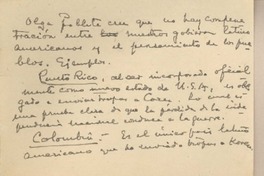 Olga Pollete cree que no hay compene
tracion entre los nuestros gobiernos latino
americanos y el pensamiento de los pue
blos. Ejemplos.
Puerto Rico, al ser incorporado oficial
mente como nuevo estado de U.S.A., es obli
gado a enviar tropas a Corea,
una prueba clara de que la pérdida de la inde
pendencia nacional conduce a la guerra.
Colombia. - Es el único país latino
americano que ha enviado tropas a Korea